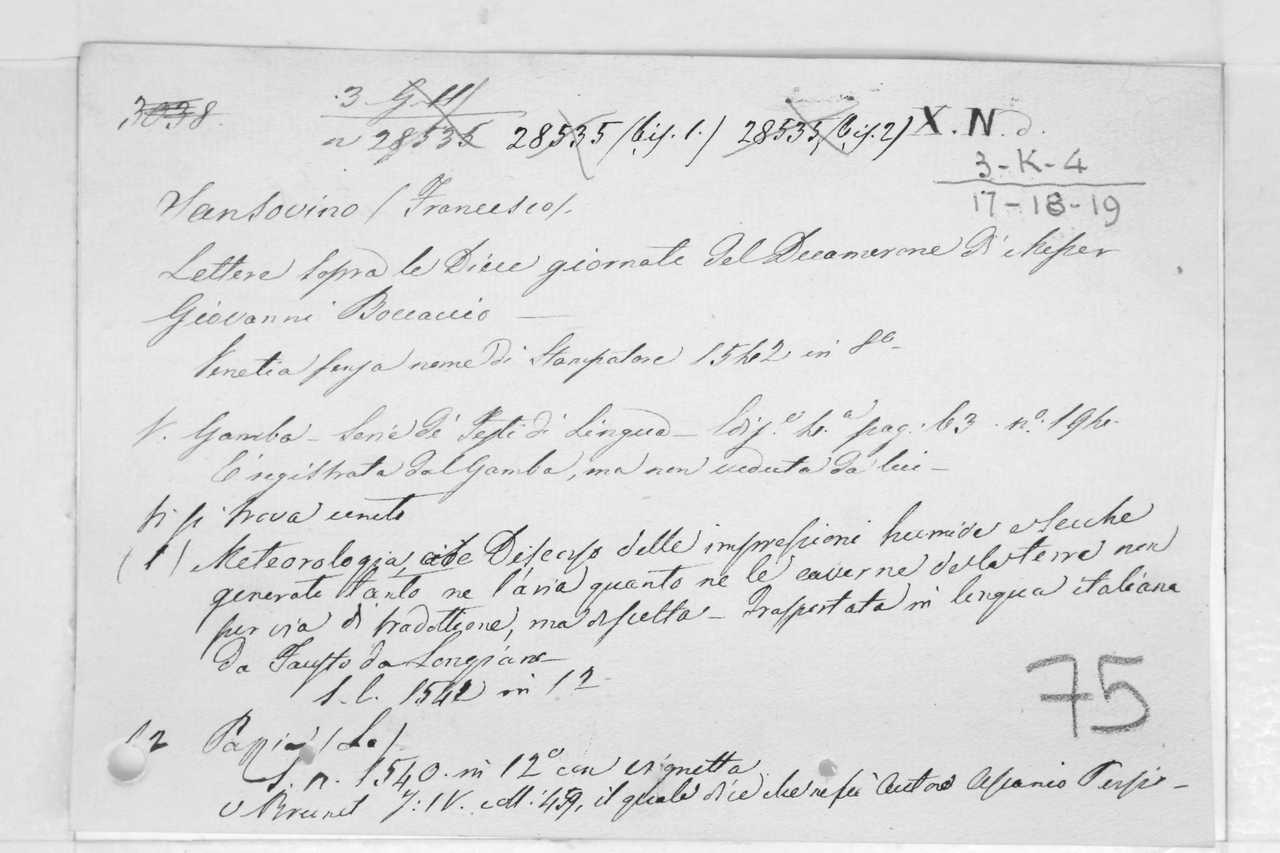 3038.
3 G 11
n 28535 28535 (bis. 1.) 28535 (bis. 2) X. N. d.
3-K-4
17-18-19
Sansovino (Francesco).
Lettere sopra le Diece giornate del Decamerone di Messer
Giovanni Boccaccio —
Venetia senza nome di Stampatore 1542 in 8º —
V. Gamba - Serie dé Testi di Lingua - Ediz.e 4.a pag. 63. nº. 194.
É registrata dal Gamba, ma non veduta da lui —
Vi si trova unito
(1) Meteorologia, cioè Discorso delle impressioni humide e secche
generate tanto ne l'aria quanto ne le caverne della terra non
per via di tradottione, ma di scelta - Trasportata in lingua italiana
da Fausto da Longiano —
S. l. 1542 in 12
2 (La)
S. n. 1540. in 12º con vignetta
V Brunet T: IV. coll: 459, il quale dice che ne fu Autore Ascanio Persi -
75